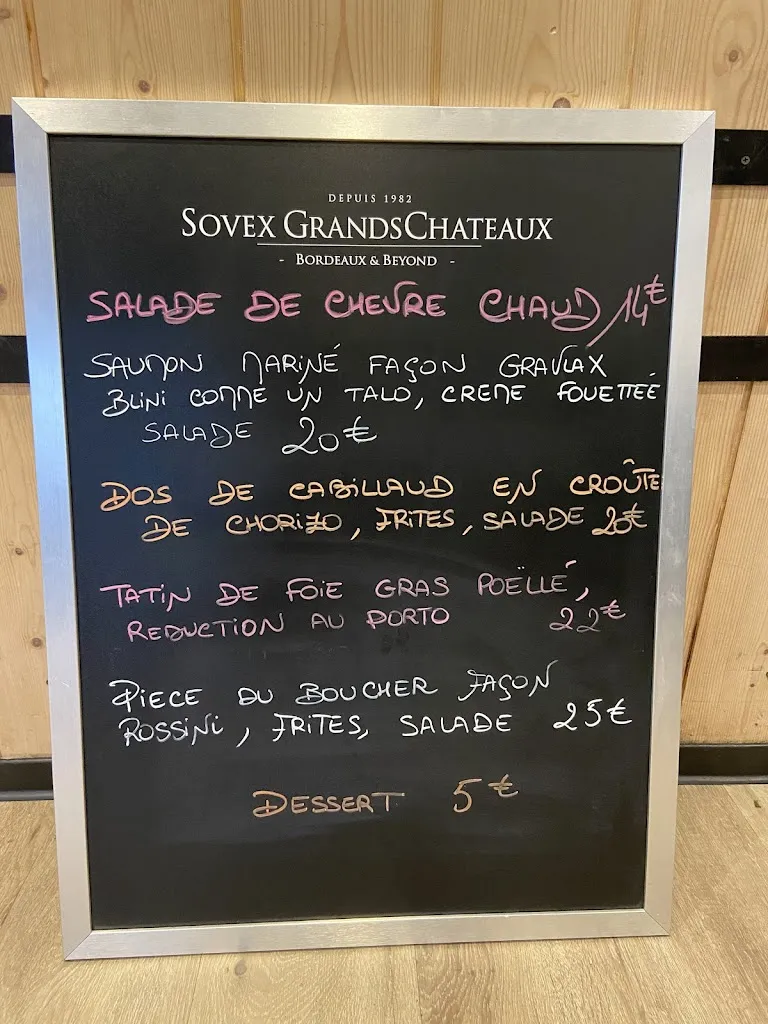 DEPUIS 1982
SOVEX GRANDSCHATEAUX
- BORDEAUX & BEYOND -
SALADE DE CHEVRE CHAUD 14€
SAUMON MARINÉ FAÇON GRAVLAX
BLINI COMME UN TACO, CREME FOUETTEÉ
SALADE 20€
DOS DE CABILLAUD EN CROÛTE
DE CHORIZO, FRITES, SALADE 20€
TATIN DE FOIE GRAS POËLLÉ,
REDUCTION AU PORTO 22€
PIECE DU BOUCHER FAÇON
ROSSINI, FRITES, SALADE 25€
DESSERT 5€